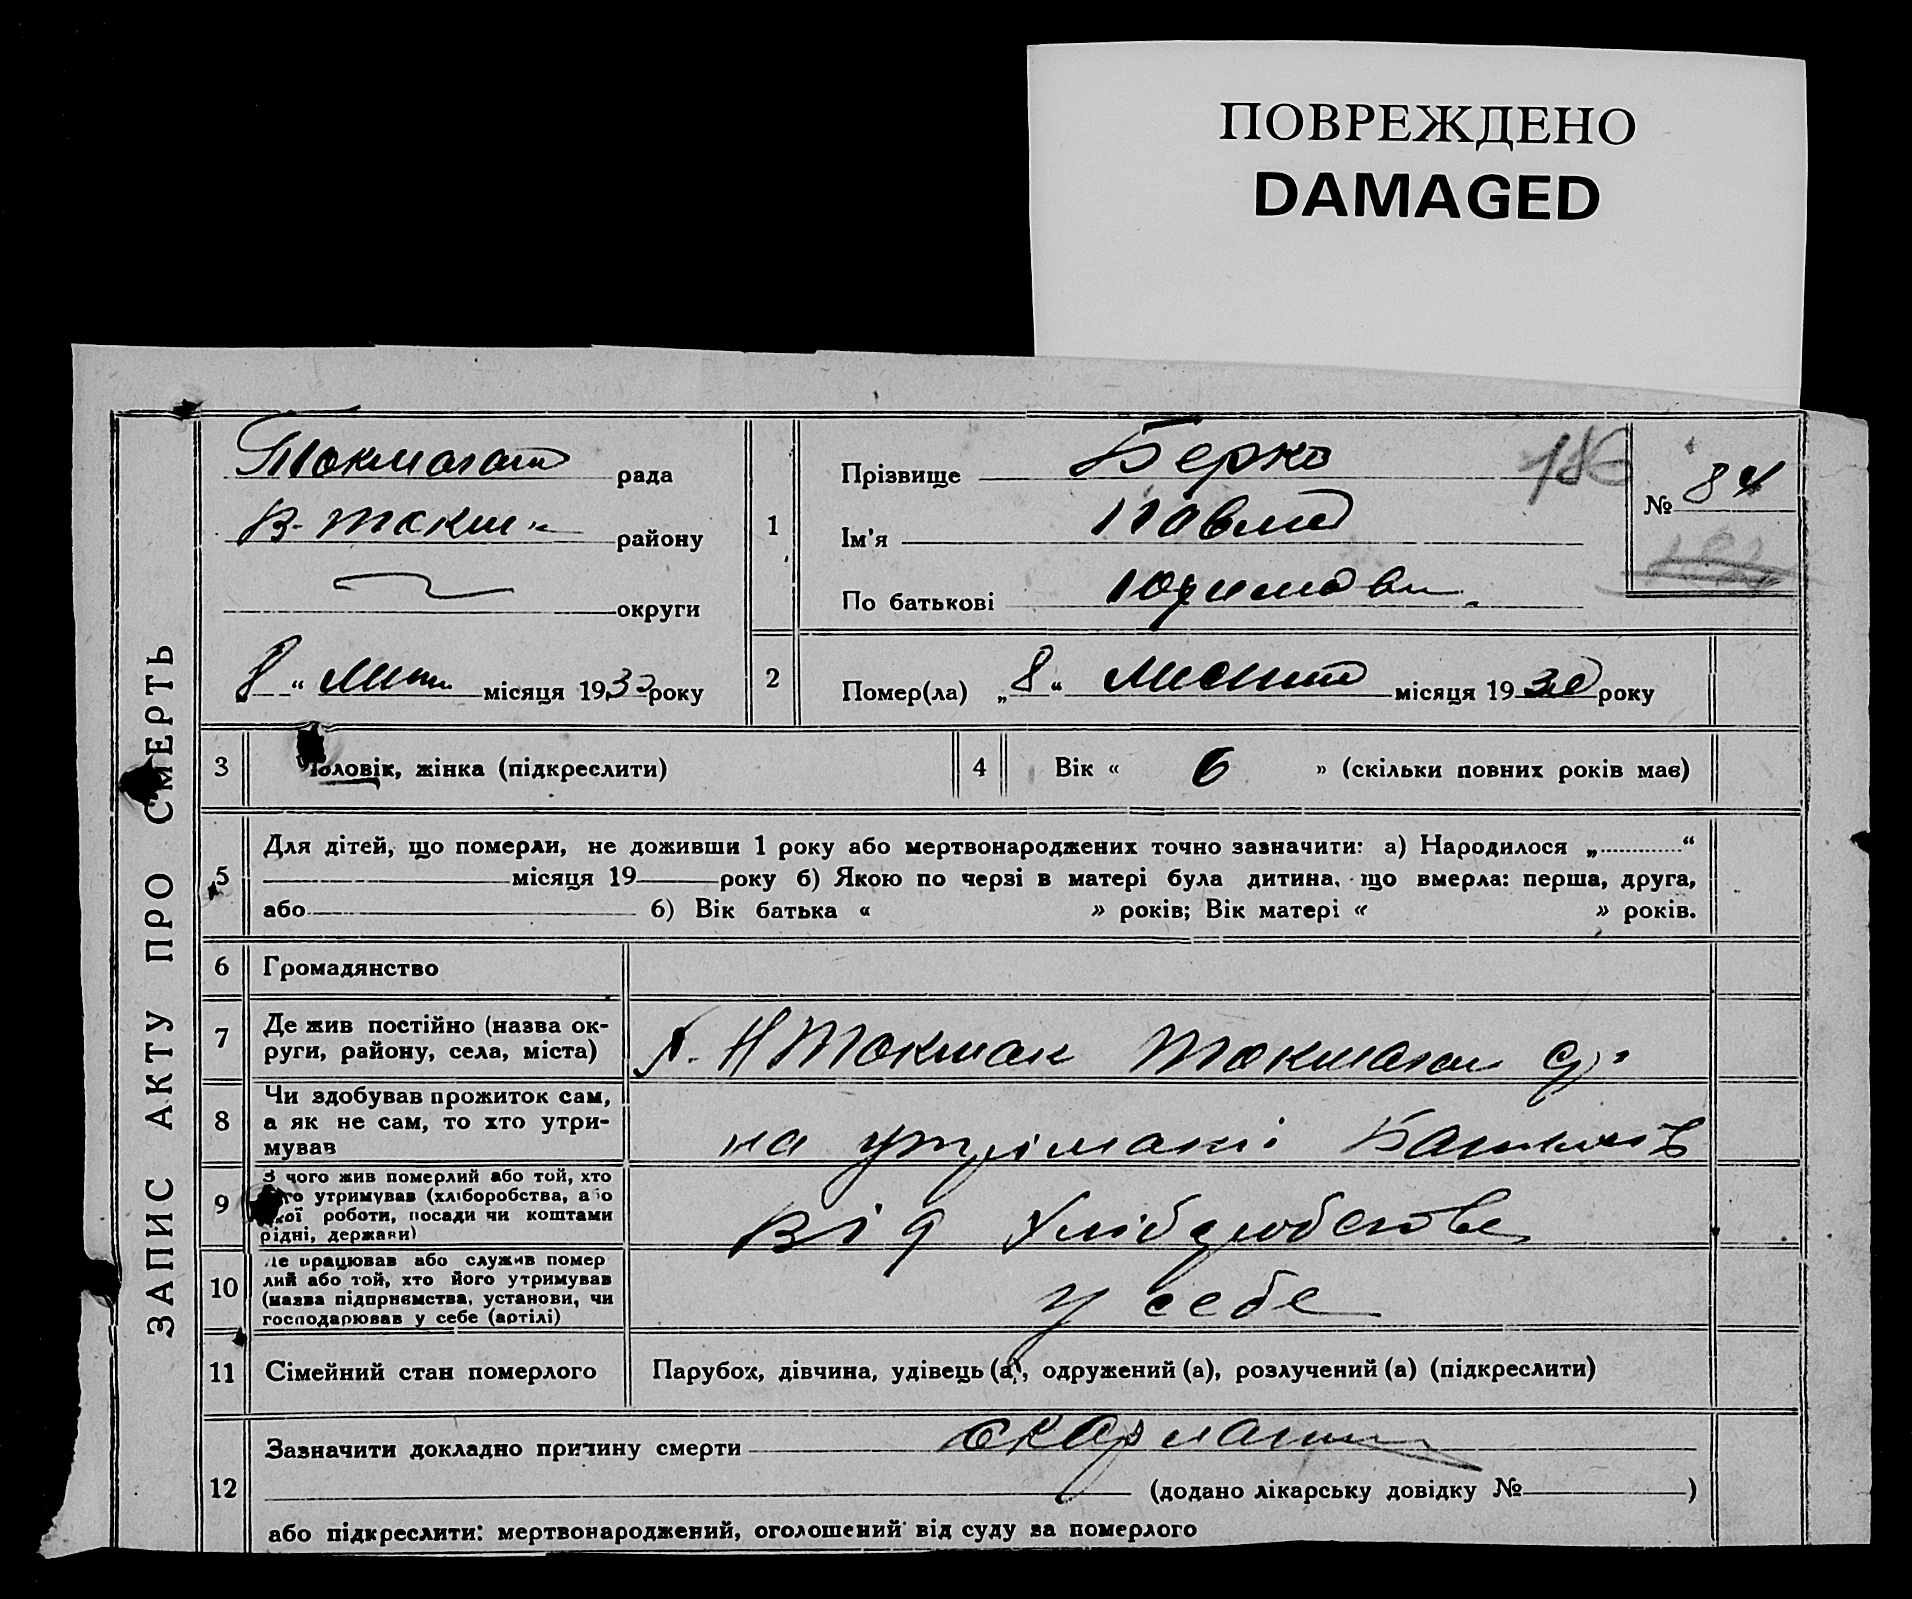 ПОВРЕЖДЕНО
DAMAGED
ЗАПИС АКТУ ПРО СМЕРТЬ
рада
В-Токм района
округи
8 " місяця 1930 року
1
Прізвище Берко
Ім'я Павло
По батькові
№ 84
186
2
Помер(ла) „8“ місяця 1930 року
3
Чоловік, жінка (підкреслити)
4
Вік « 6 » (скільки повних років має)
5
Для дітей, що померли, не доживши 1 року або мертвонароджених точно зазначити: а) Народилося „ “
місяця 19 року б) Якою по черзі в матері була дитина, що вмерла: перша, друга,
або б) Вік батька « » років; Вік матері « » років.
6
Громадянство
7
Де жив постійно (назва ок-
руги, району, села, міста)
Токмак
8
Чи здобував прожиток сам,
а як не сам, то хто утри-
мував
на утріманні Батьків
9
З чого жив померлий або той, хто
його утримував (хліборобства, або
якої роботи, посади чи коштами
рідні, держави)
від
10
Де працював або служив помер
лий або той, хто його утримував
(назва підприємства, установи, чи
господарював у себе (артілі)
у себе
11
Сімейний стан померлого
Парубок, дівчина, удівець (а), одружений (а), розлучений (а) (підкреслити)
12
Зазначити докладно причину смерти скарлатина
(додано лікарську довідку № )
або підкреслити: мертвонароджений, оголошений від суду за померлого